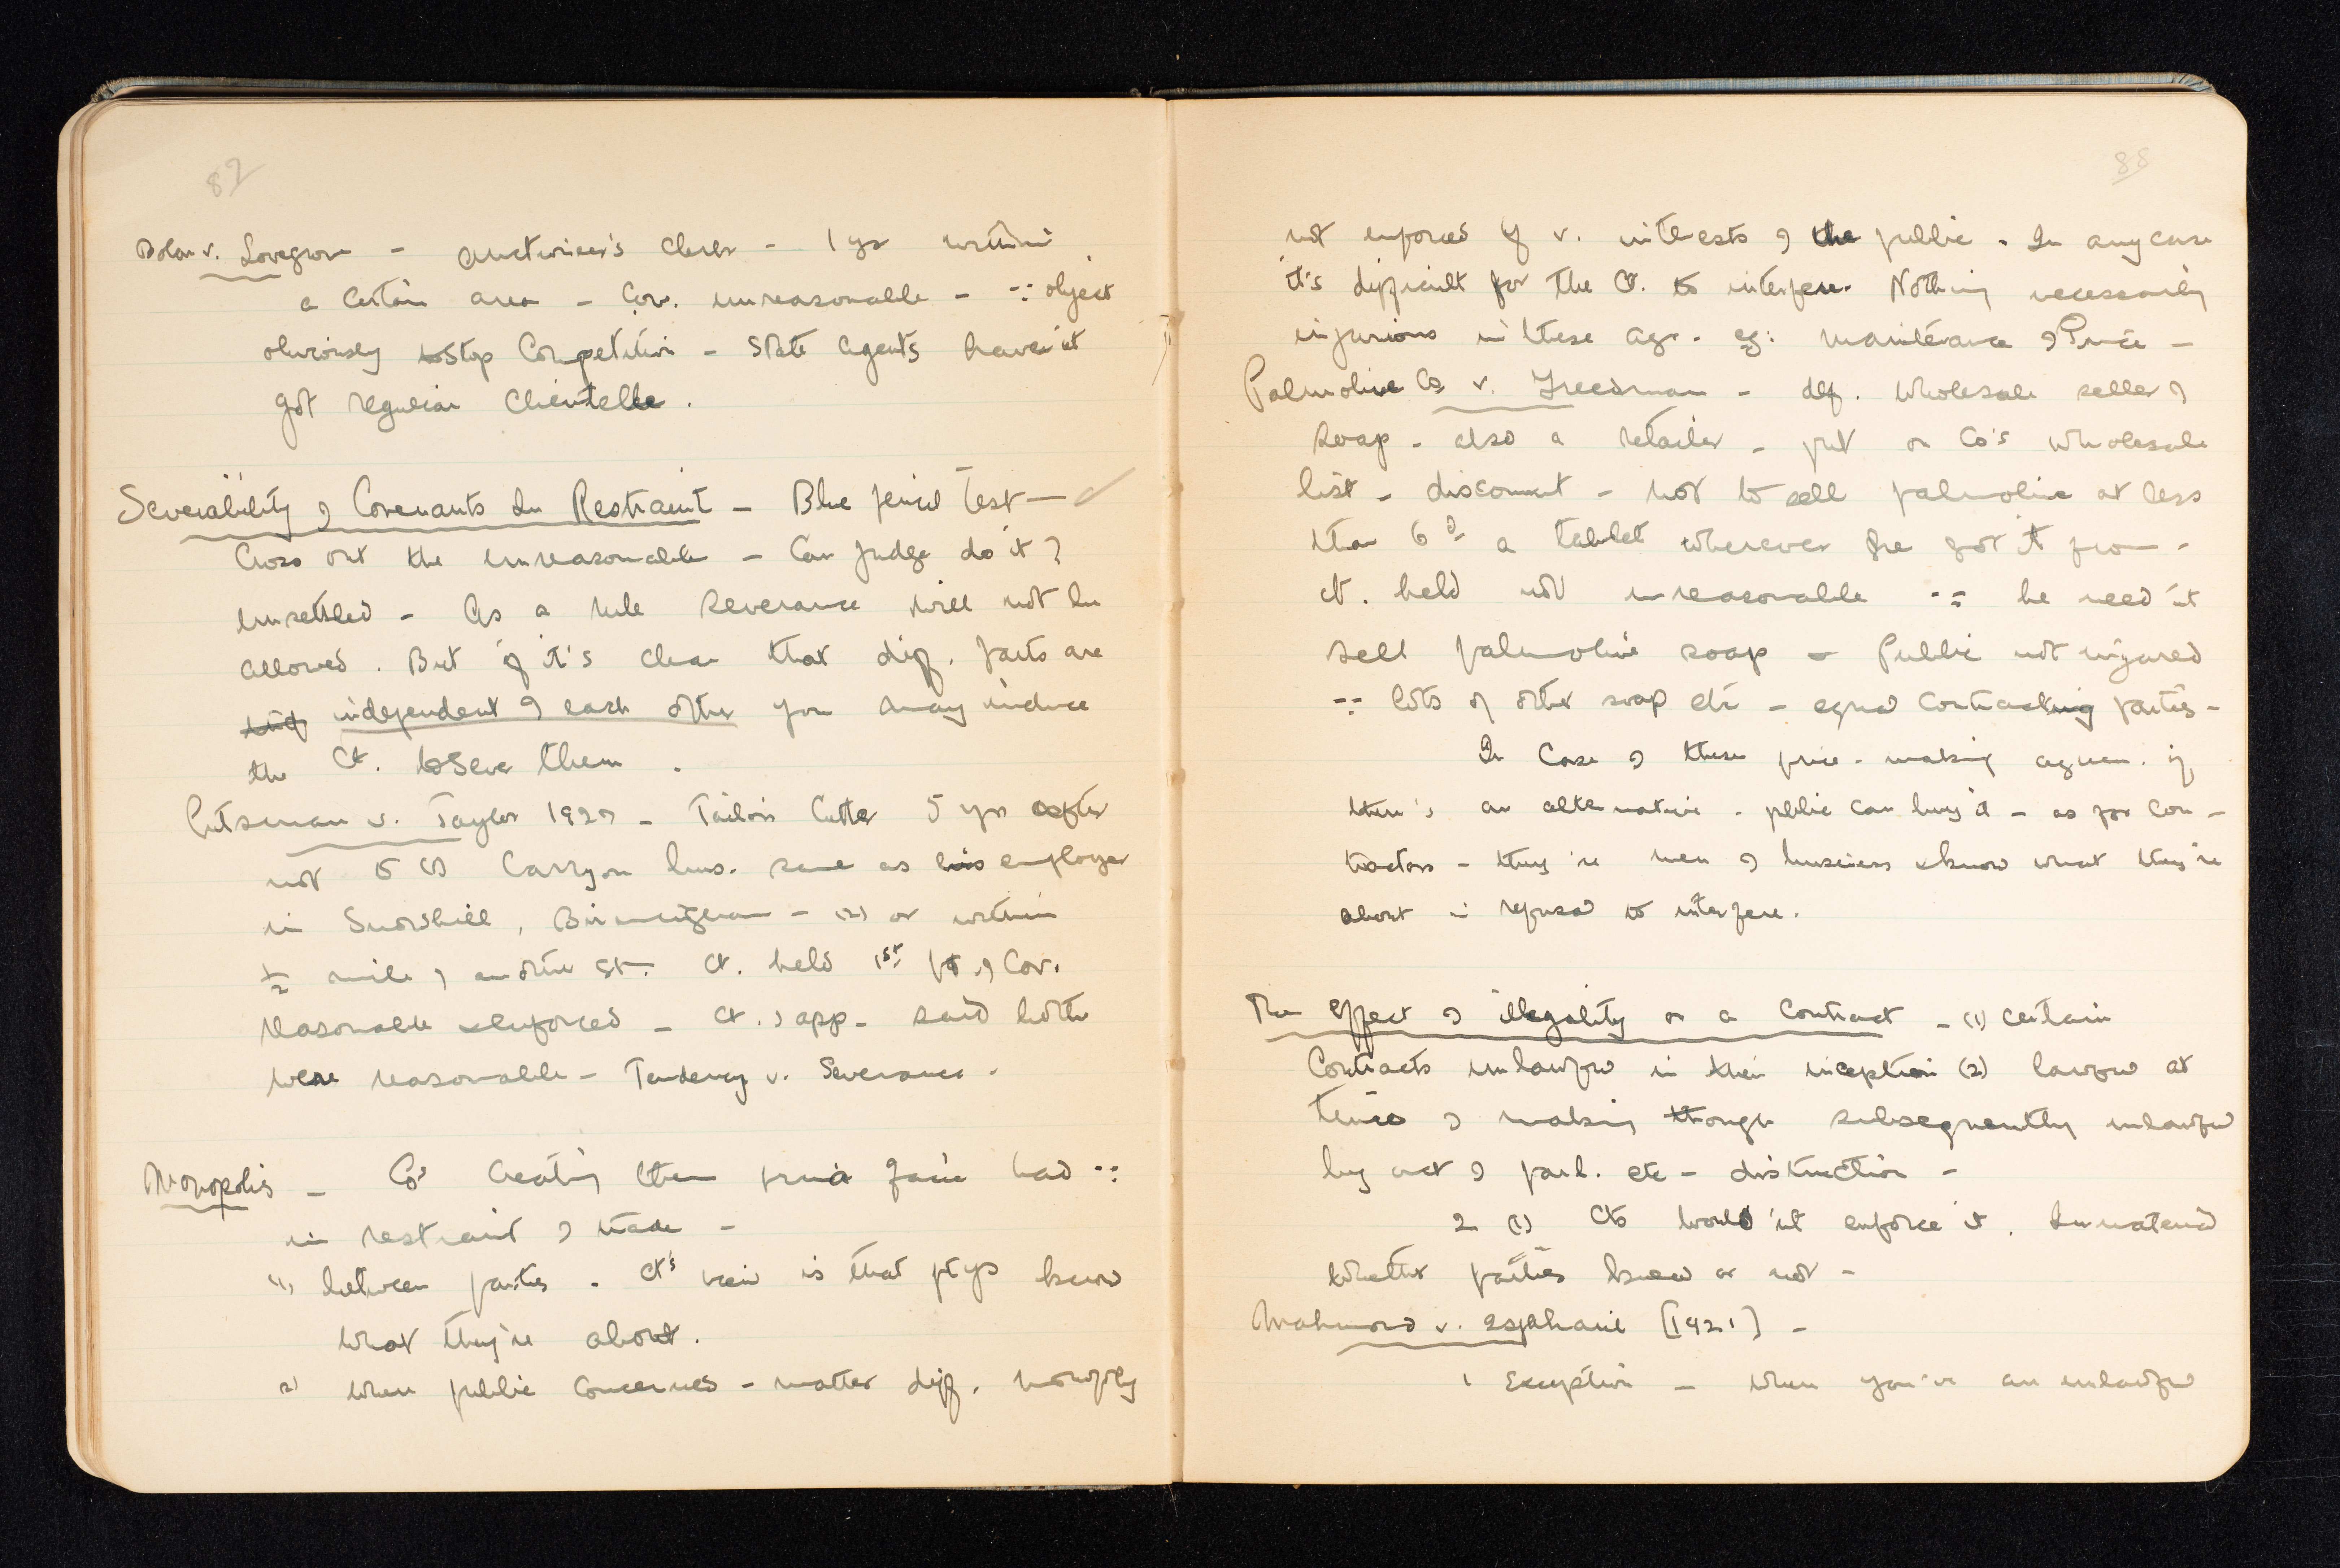 82
v. Lovegrove - auctioneer's clerk - 1 yr within
a certain area - Cov. unreasonable - ∵ object
obviously to stop Competition - State Agents haven't
got regular Clientelle.
Severability of Covenants In Restraint - Blue pencil Test -
Cross out the unreasonable - Can judge do it?
Unsettled - As a rule Severance will not be
allowed. But if it's clear that diff. parts are
independent of each other you may induce
the Ct. to Sever them.
Putsman v. Taylor 1927 - Tailor's Cutter 5 yrs after
not to (1) Carry on bus. same as his employer
in Snowhill, Birmingham - (2) or within
½ mile of another St. Ct. held 1st pt. of Cov.
reasonable & enforced - Ct. of app - said both
were reasonable - Tendency v. Severance.
Monopolies - Co's creating them prima facie bad ∵
in restraint of trade -
(1) between parties - Ct's view is that ptys know
what they're about.
2) When public concerned - matter diff. monopoly
88
not enforced if v. interests of the public. In any case
it's difficult for the Ct. to interfere. Nothing necessarily
injurious in these agr. eg: maintenance of Price -
Palmolive Co v. Freedman - def. wholesale seller of
soap - also a retailer - put on Co's wholesale
list - discount - not to sell palmolive at less
than 6d a tablet wherever he got it from -
ct. held not unreasonable ∵ he needn't
sell palmolive soap - Public not injured
∵ lots of other soap etc - equal contracting parties -
In Case of these price-making agreem. if
there's an alternative - public can buy it - as for con-
tractors - they're men of business & know what they're
about ∴ refused to interfere.
The effect of illegality on a Contract - (1) certain
Contracts unlawful in their inception (2) lawful at
time of making though subsequently unlawful
by act of parl. etc - distinction -
In (1) Cts wouldn't enforce it. Immaterial
whether parties knew or not -
Mahmoud v. Ispahani [1921] -
1 Exception - When you've an unlawful